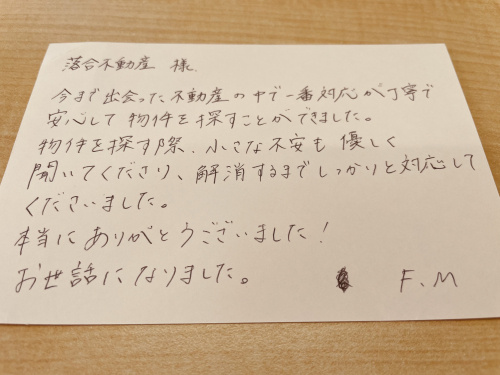 落合不動産 様.
今まで出会った不動産の中で一番対応が丁寧で
安心して物件を探すことができました。
物件を探す際、小さな不安も優しく
聞いてくださり、解消するまでしっかりと対応して
くださいました。
本当にありがとうございました!
お世話になりました。
F.M